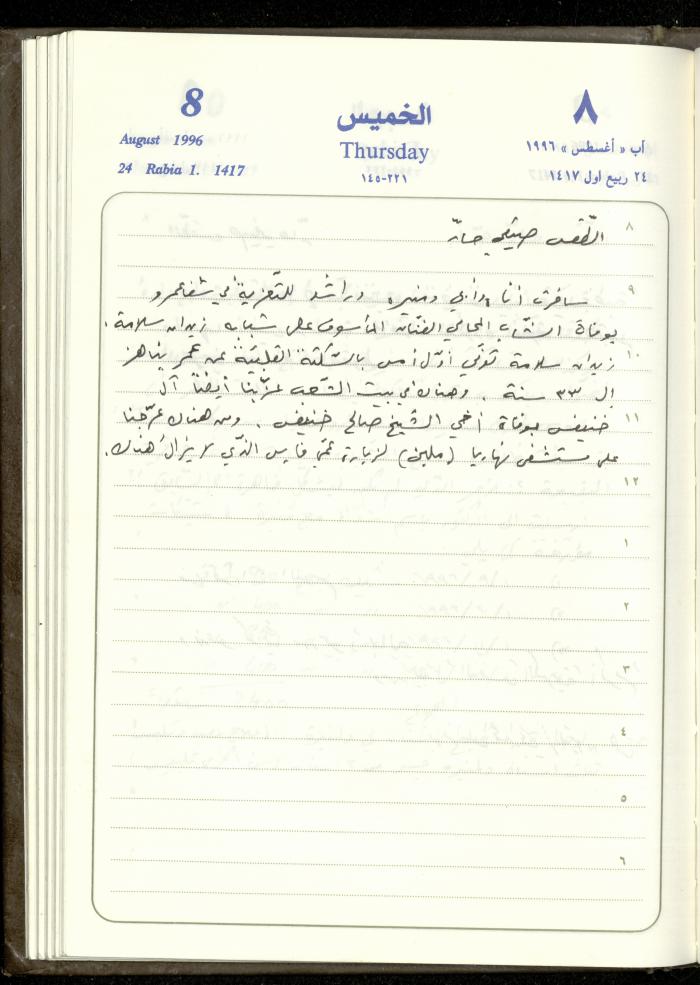 8
August 1996
24 Rabia 1. 1417
الخميس
Thursday
٢٢١-١٤٥
٨
آب « أغسطس » ١٩٩٦
٢٤ ربيع اول ١٤١٧
٨
الطّقس صيفي حارّ
٩
سافرت أنا وأبي ومنيره وراشد للتّعزية في شفاعمرو
بوفاة الشّاب المحامي الفنّان المأسوف على شبابه زيدان سلامة.
١٠
زيدان سلامة توفّي أوّل أمس بالسّكتة القلبيّة عن عمر يناهز
ال ٣٣ سنة. وهناك في بيت الشّعب عزّينا أيضاً آل
١١
خنيفس بوفاة أخي الشّيخ صالح خنيفس. ومن هناك عرّجنا
على مستشفى نهاريا لزيارة عمّي فارس الذّي لا يزال هناك.
١٢
١
٢
٣
٤
٥
٦